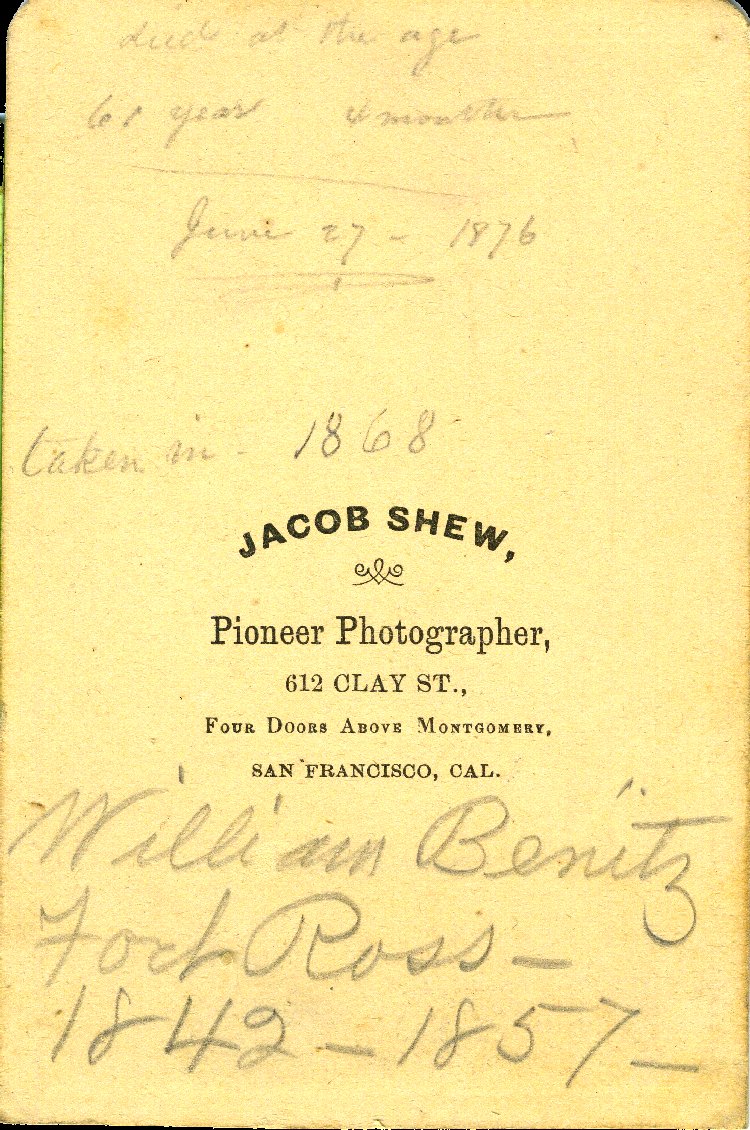 died at the age
61 year 4 months
June 27 - 1876
taken in - 1868
JACOB SHEW,
Pioneer Photographer,
612 CLAY ST.,
FOUR DOORS ABOVE MONTGOMERY,
SAN FRANCISCO, CAL.
William Benitz
Fort Ross -
1842 - 1857 -